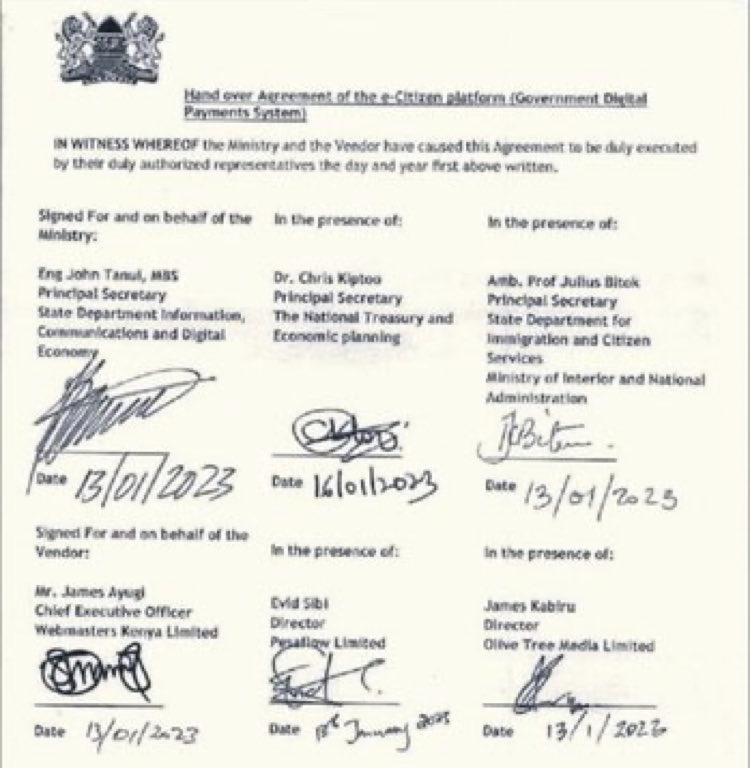 Hand over Agreement of the e-Citizen platform (Government Digital
Payments System)
IN WITNESS WHEREOF the Ministry and the Vendor have caused this Agreement to be duly executed
by their duly authorized representatives the day and year first above written.
Signed For and on behalf of the
Ministry:
Eng John Tanui, MBS
Principal Secretary
State Department Information,
Communications and Digital
Economy
Date 13/01/2023
In the presence of:
Dr. Chris Kiptoo
Principal Secretary
The National Treasury and
Economic planning
Date 16/01/2023
In the presence of:
Amb. Prof Julius Bitok
Principal Secretary
State Department for
Immigration and Citizen
Services
Ministry of Interior and National
Administration
Date 13/01/2023
Signed For and on behalf of the
Vendor:
Mr. James Ayugi
Chief Executive Officer
Webmasters Kenya Limited
Date 13/01/2023
In the presence of:
Evid Sibi
Director
Pesaflow Limited
Date January 2023
In the presence of:
James Kabiru
Director
Olive Tree Media Limited
Date 13/1/2023